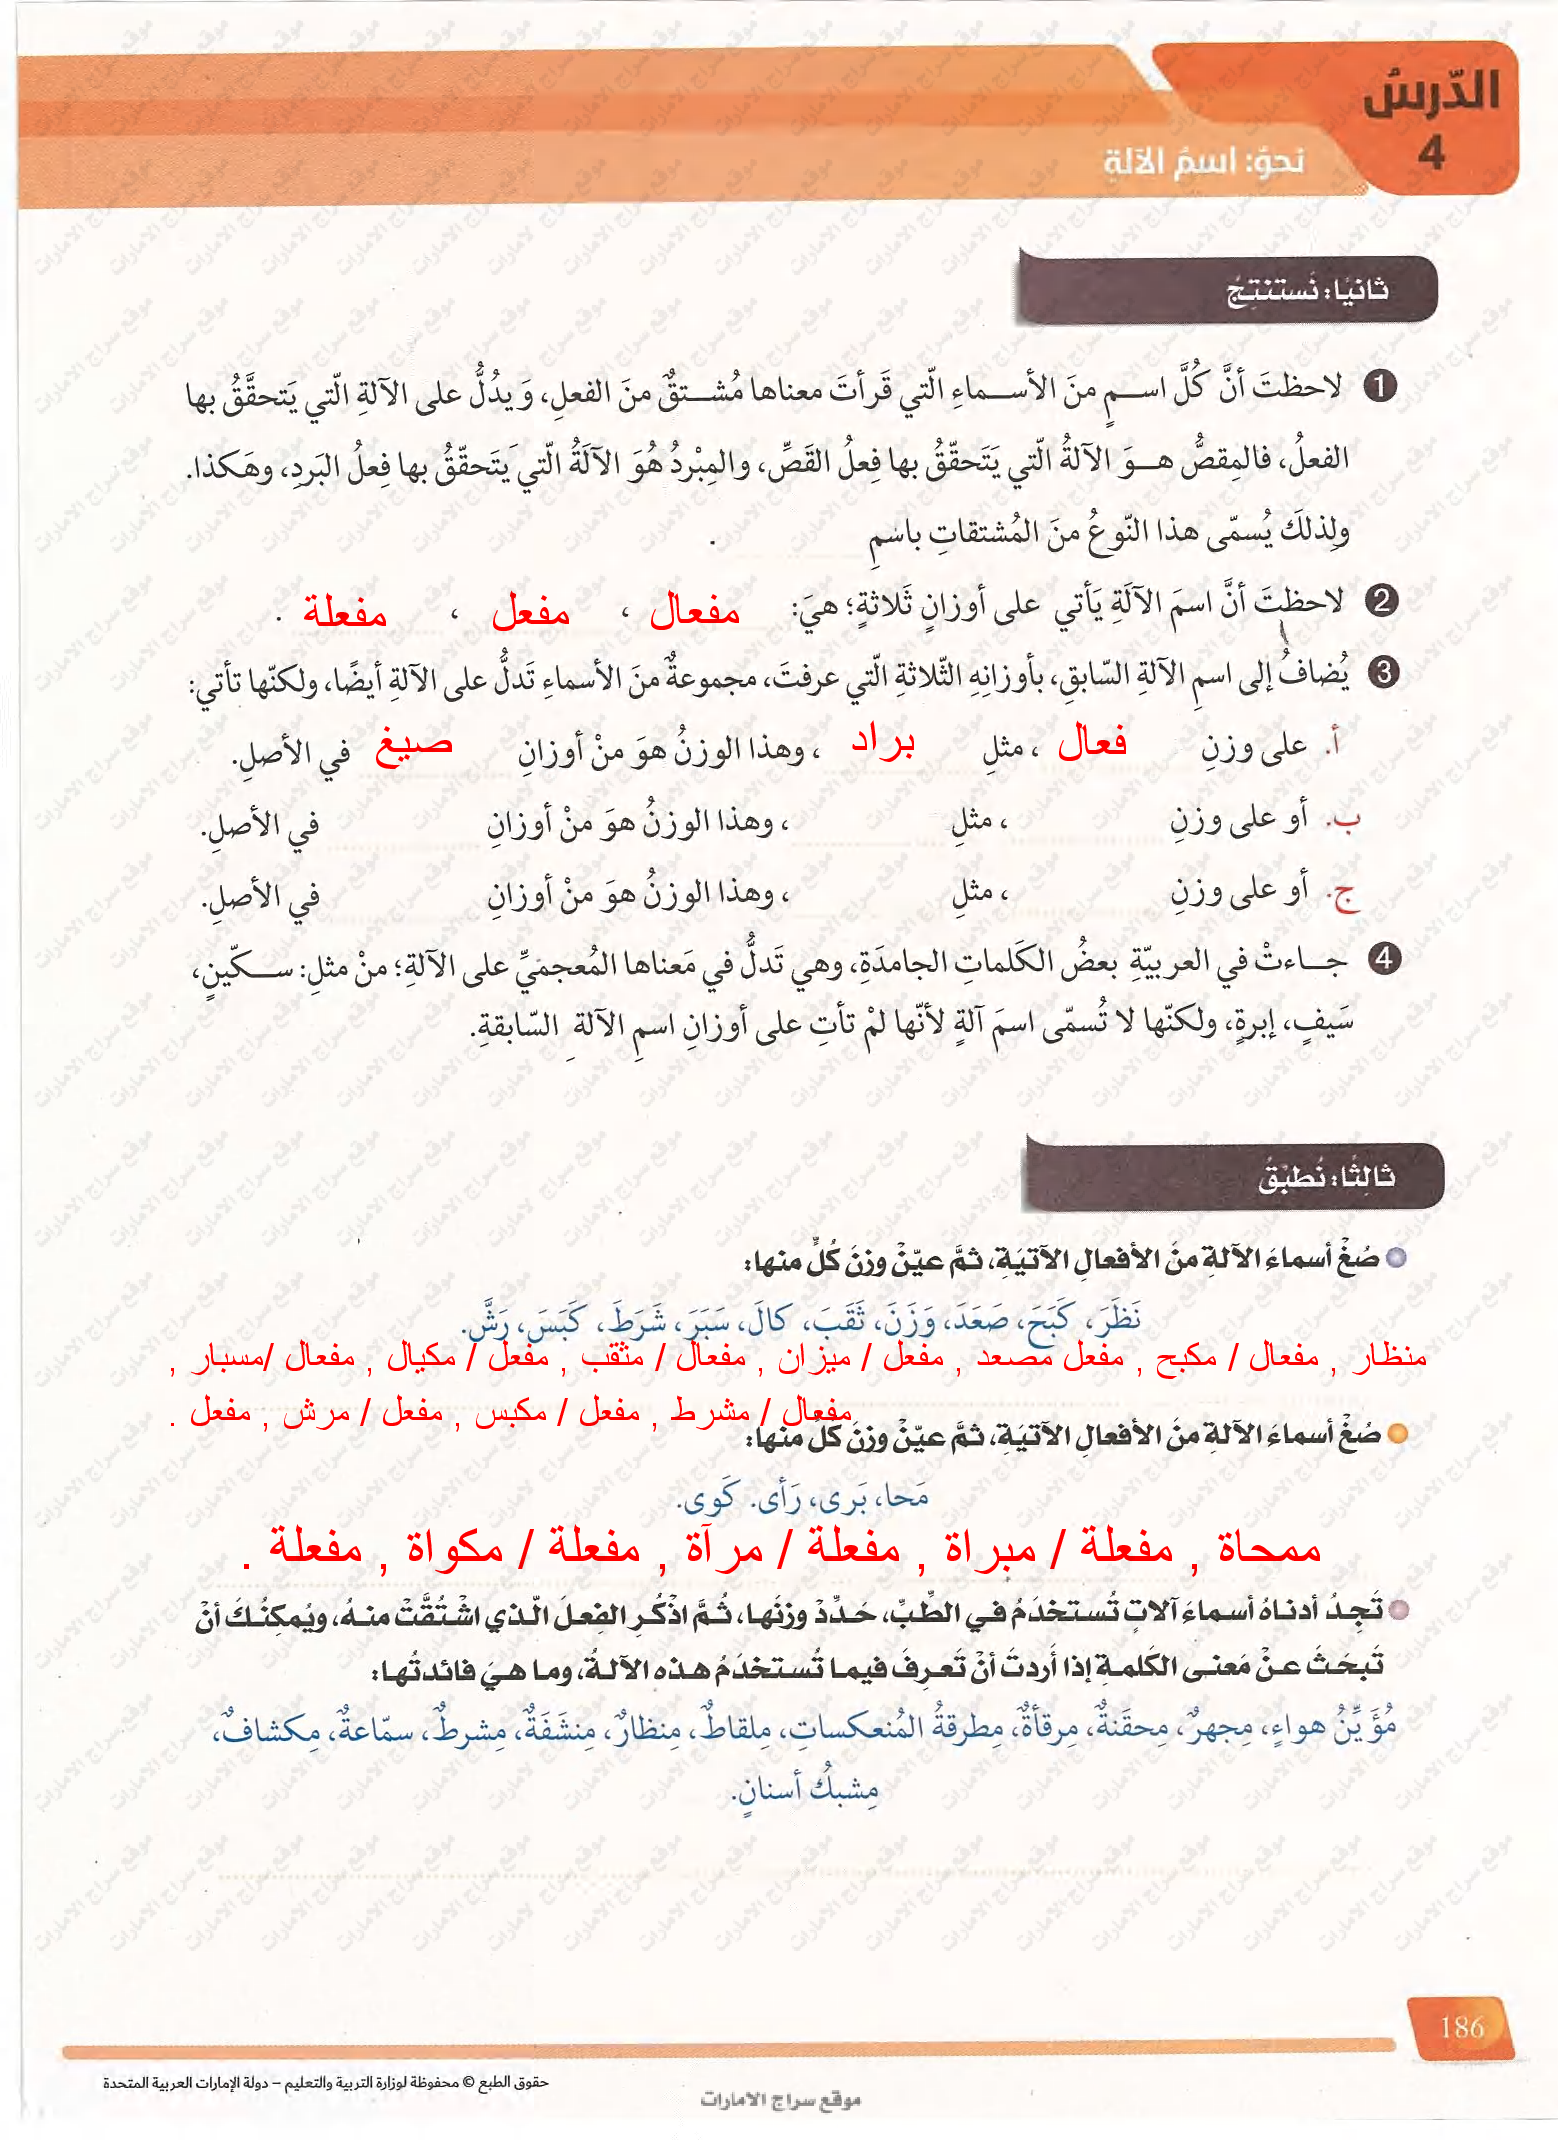 الدّرسُ
4
نحوٌ: اسمُ الآلةِ
ثانيًا: نَستنتِجُ
1 لاحظتَ أنَّ كُلَّ اسمٍ منَ الأسماءِ الّتي قَرأتَ معناها مُشتقٌّ منَ الفعلِ، وَيدُلُّ على الآلةِ الّتي يَتحقَّقُ بها
الفعلُ، فالمِقصُّ هوَ الآلةُ الّتي يَتَحقّقُ بها فِعلُ القَصِّ، والمِبْردُ هُوَ الآلَةُ الّتي يَتَحقّقُ بها فِعلُ البَردِ، وهَكذا.
ولِذلكَ يُسمّى هذا النّوعُ منَ المُشتقاتِ باسْمِ .
2 لاحظتَ أنَّ اسمَ الآلَةِ يَأتي على أوزانٍ ثَلاثةٍ؛ هيَ: مفعال ، مفعل ، مفعلة .
3 يُضافُ إلى اسمِ الآلةِ السّابقِ، بأوزانِهِ الثّلاثةِ الّتي عرفتَ، مجموعةٌ منَ الأسماءِ تَدلُّ على الآلةِ أيضًا، ولكنّها تأتي:
أ. على وزنِ فعال ، مثلِ براد ، وهذا الوزنُ هوَ منْ أوزانِ صيغ في الأصلِ.
ب. أو على وزنِ ، مثلِ ، وهذا الوزنُ هوَ منْ أوزانِ في الأصلِ.
ج. أو على وزنِ ، مثلِ ، وهذا الوزنُ هوَ منْ أوزانِ في الأصلِ.
4 جاءتْ في العربيّةِ بعضُ الكَلماتِ الجامدَةِ، وهي تَدلُّ في مَعناها المُعجمَيِّ على الآلةِ؛ منْ مثلِ: سكّينٍ،
سَيفٍ، إبرةٍ، ولكنّها لا تُسمّى اسمَ آلةٍ لأنّها لمْ تأتِ على أوزانِ اسمِ الآلةِ السّابقةِ.
ثالِثًا: نُطبِّقُ
صُغْ أسماءَ الآلةِ منَ الأفعالِ الآتيَةِ، ثمَّ عيّنْ وزنَ كُلٍّ منها:
نَظَرَ، كَبَحَ، صَعَدَ، وَزَنَ، ثَقَبَ، كالَ، سَبَرَ، شَرَطَ، كَبَسَ، رَشَّ.
منظار , مفعال / مكبح , مفعل مصعد , مفعل / ميزان , مفعال / مثقب , مفعل / مكيال , مفعال /مسبار ,
مفعال / مشرط , مفعل / مكبس , مفعل / مرش , مفعل .
صُغْ أسماءَ الآلةِ منَ الأفعالِ الآتيَةِ، ثمَّ عيّنْ وزنَ كُلٍّ منها:
مَحا، بَرى، رَأى. كَوى.
ممحاة , مفعلة / مبراة , مفعلة / مرآة , مفعلة / مكواة , مفعلة .
تَجِدُ أدناهُ أسماءَ آلاتٍ تُستخدَمُ في الطِّبِّ، حَدِّدْ وزنَها، ثُمَّ اذْكُرِ الفِعلَ الّذي اشْتُقَّتْ منهُ، ويُمكِنُكَ أنْ
تَبحَثَ عنْ مَعنى الكَلمةِ إذا أردتَ أنْ تَعرِفَ فيما تُستخدَمُ هذه الآلةُ، وما هيَ فائدتُها:
مُؤَيِّنُ هواءٍ، مِجهرٌ، مِحقَنةٌ، مِرقأةٌ، مِطرقةُ المُنعكساتِ، مِلقاطٌ، مِنظارٌ، مِنشَفَةٌ، مِشرطٌ، سمّاعةٌ، مِكشافٌ،
مِشبكُ أسنانٍ.
186
حقوق الطبع © محفوظة لوزارة التربية والتعليم – دولة الإمارات العربية المتحدة
موقع سراج الامارات